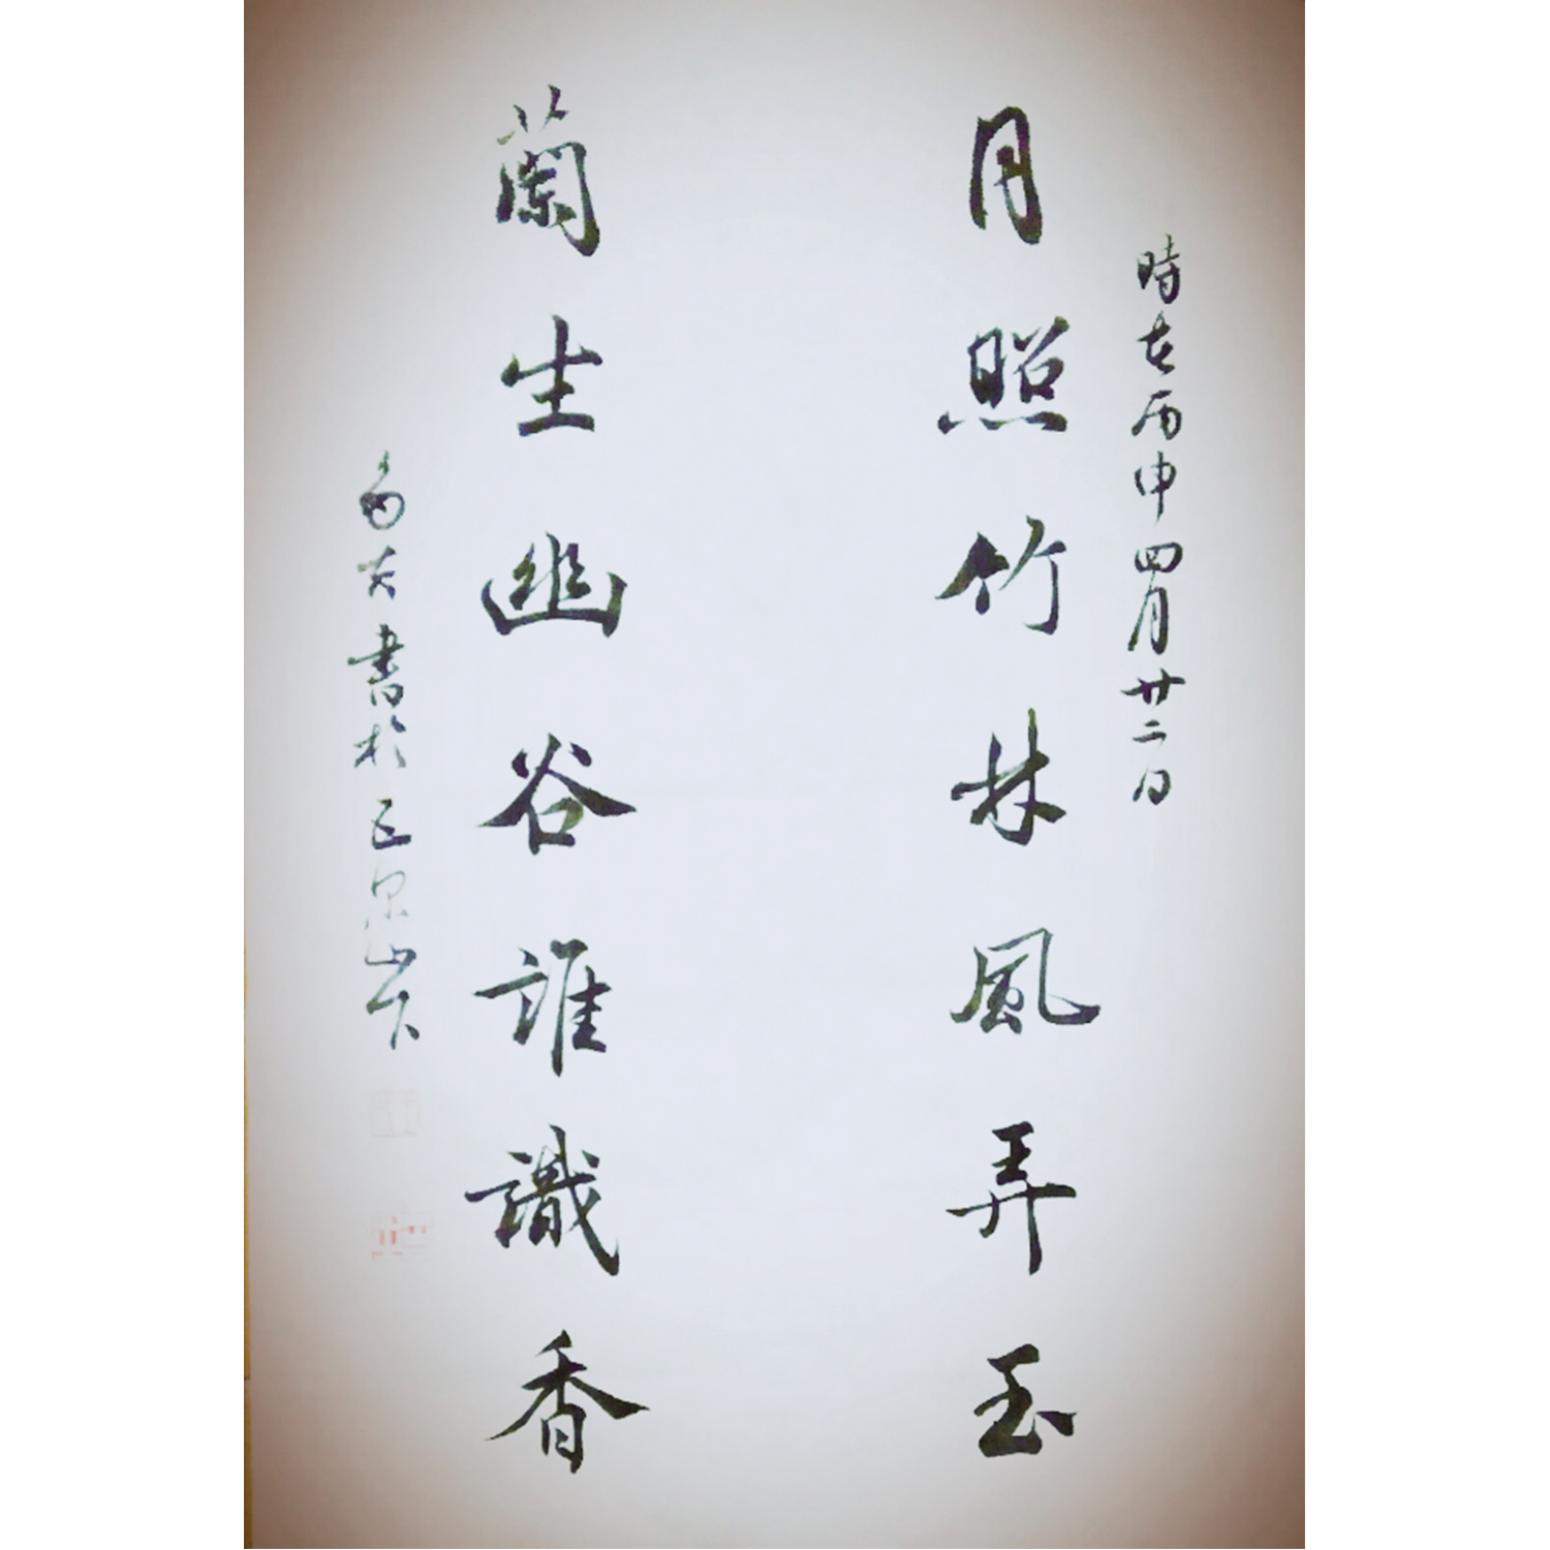 時在丙申四月廿二日
月照竹林風弄玉
蘭生幽谷誰識香
書於五泉山下